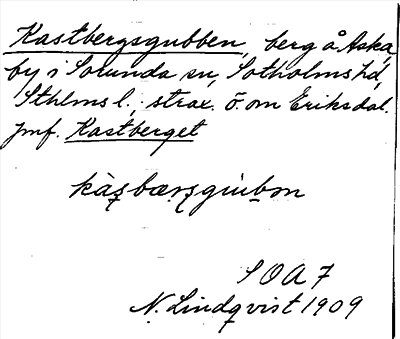 Kastbergsgubben, berg å Aska
by i Sorunda sn, Sotholms hd,
Sthlms l., strax ö. om Eriksdal.
Jmf. Kastberget
S O A 7
N. Lindqvist 1909